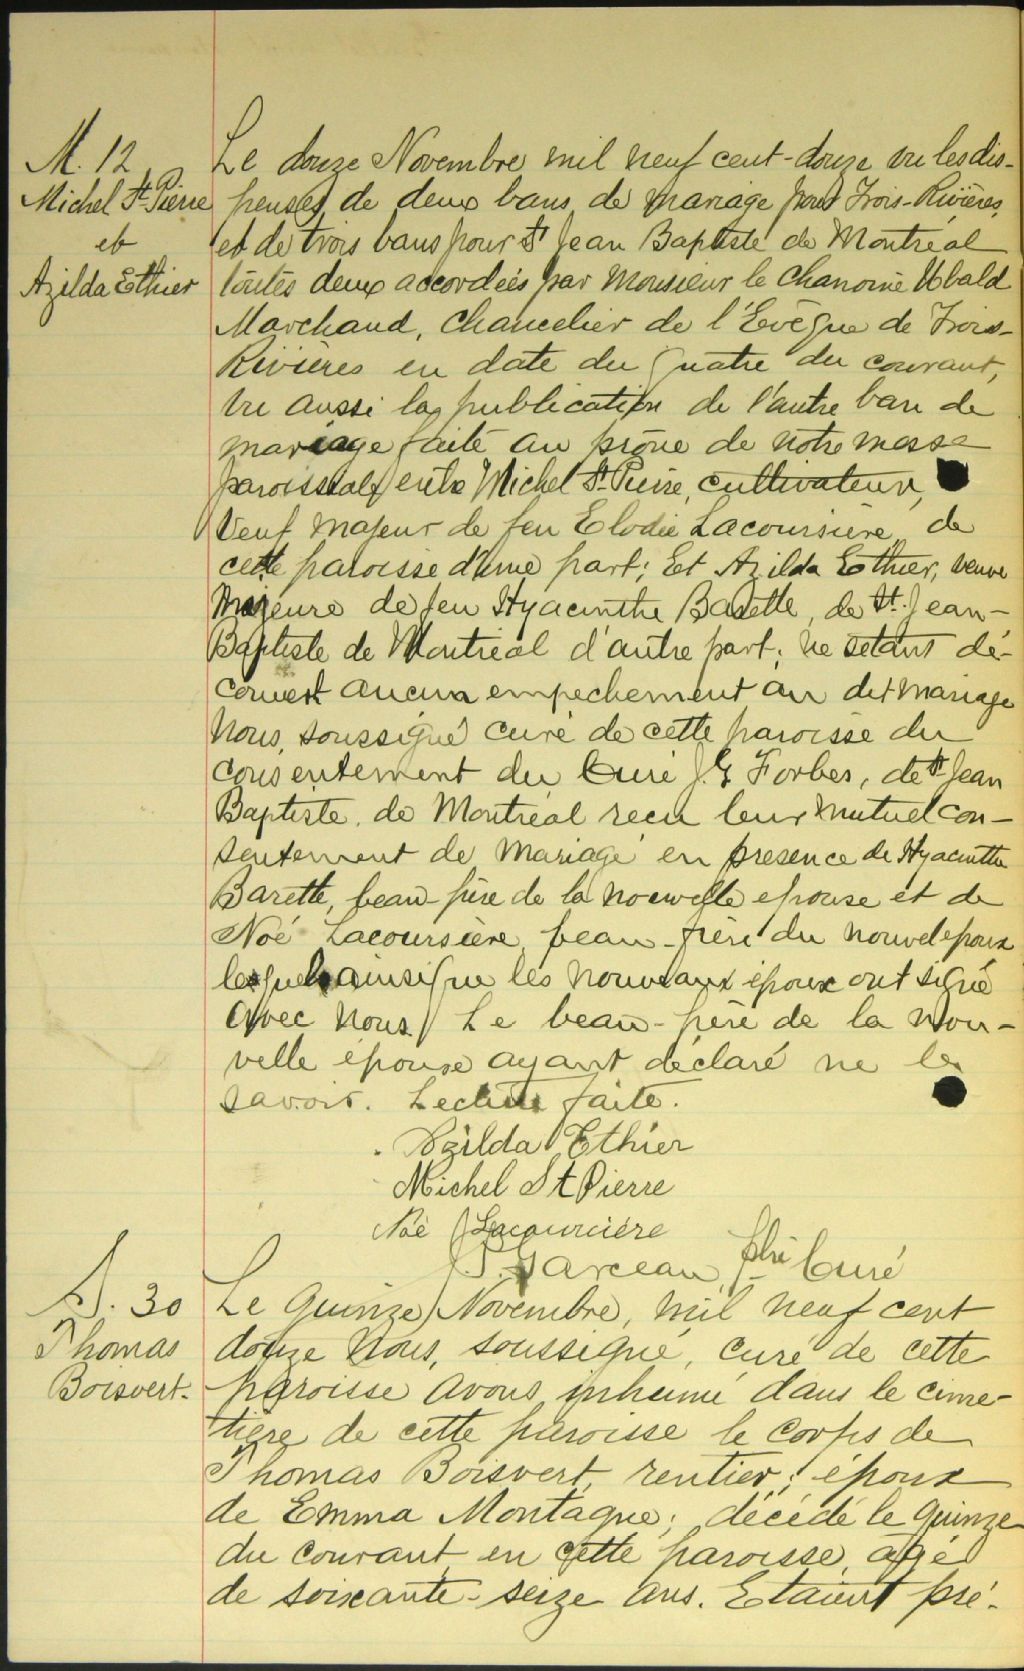 M. 12
Michel St Pierre
et
Azilda Ethier
Le douze Novembre mil neuf cent-douze vu les dis-
penses de deux bans de mariage pour Trois-Rivières,
et de trois bans pour St Jean Baptiste de Montréal
toutes deux accordées par Monsieur le Chanoine Ubald
Marchand, Chancelier de l'Evêque de Trois-
Rivières en date du quatre du courant,
vu aussi la publication de l'autre ban de
mariage faite au prône de notre messe
paroissiale entre Michel St. Pierre, cultivateur,
Veuf majeur de feu Elodie Lacoursière, de
cette paroisse d'une part; Et Azilda Ethier, veuve
Majeure de feu Hyacinthe Barette, de St. Jean-
Baptiste de Montreal d'autre part; ne s'étant dé-
couvert aucun empechement au dit mariage
Nous, soussigné curé de cette paroisse du
consentement du Curé J. G Forbes, de St Jean
Baptiste de Montréal recu leur mutuel con-
sentement de mariage en presence de Hyacinthe
Barette, beau-père de la nouvelle epouse et de
Noé Lacoursière, beau-frère du nouvel epoux
lesquels ainsi que les nouveaux époux ont signé
avec nous. Le beau-père de la nou-
velle épouse ayant déclaré ne le
savoir. Lecture faite.
Azilda Ethier
Michel St Pierre
Noé Lacourciére
J. P. Garceau, ptre Curé
S. 30
Thomas
Boisvert.
Le quinze Novembre, mil neuf cent
douze Nous, soussigné, curé de cette
paroisse avons inhumé dans le cime-
tière de cette paroisse le corps de
Thomas Boisvert, rentier, époux
de Emma Montagne; décédé le quinze
du courant en cette paroisse, agé
de soixante-seize ans. Etaient pré-